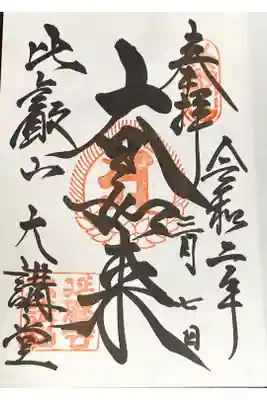 奉拝
令和二年
二月七日
大日如来
比叡山 大講堂